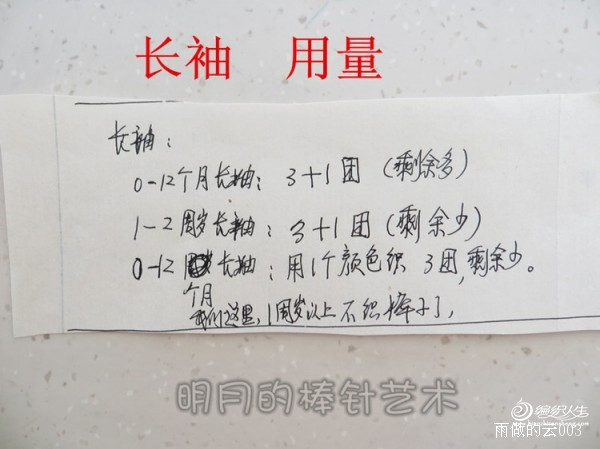 长袖 用量
长袖：
0-12个月长袖：3+1团（剩余多）
1-2周岁长袖：3+1团（剩余少）
0-12 长袖：用1个颜色织 3团,剩余少。
个月
我们这里,1周岁以上不织裤子了,
明月的棒针艺术
编织人生
雨做的云003